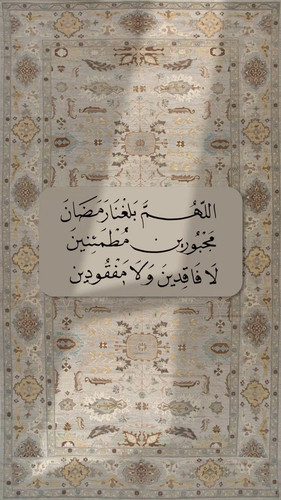 اللَّهُمَّ بَلِّغْنَا رَمَضَانَ
مَجْبُورِين مُطْمَئِنِينَ
لَا فَاقِدِينَ وَلَا مَفْقُودِينَ